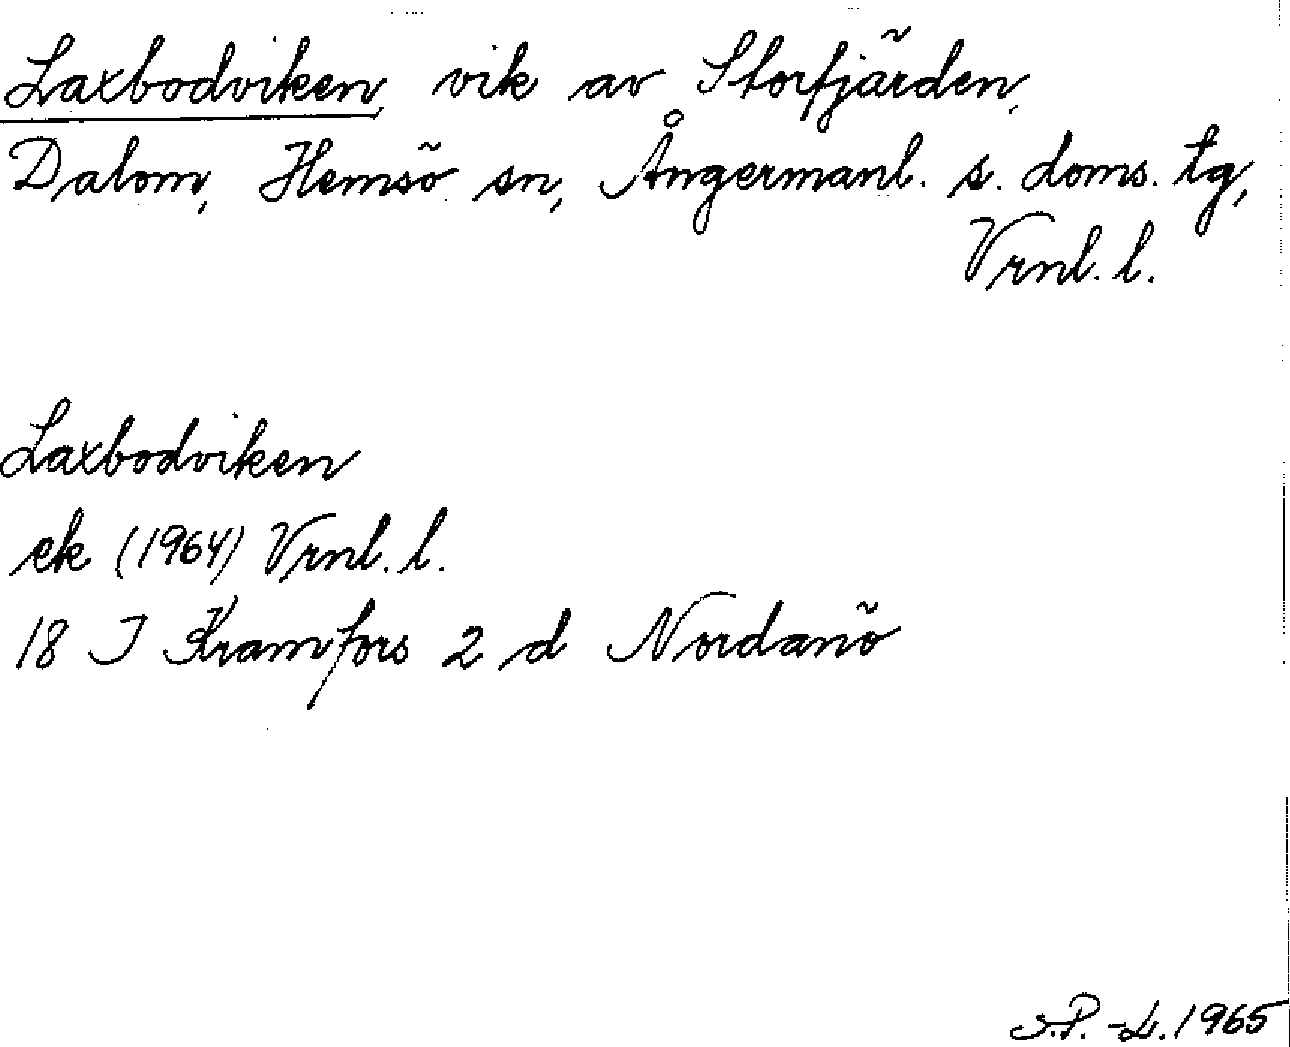 Laxbodviken, vik av Storfjärden,
Dalom, Hemsö sn, Ångermanl. s. doms. tg,
Vrnl. l.
Laxbodviken
ek (1964) Vrnl. l.
18 I Kramfors 2 d Nordanö
S.P.-L. 1965